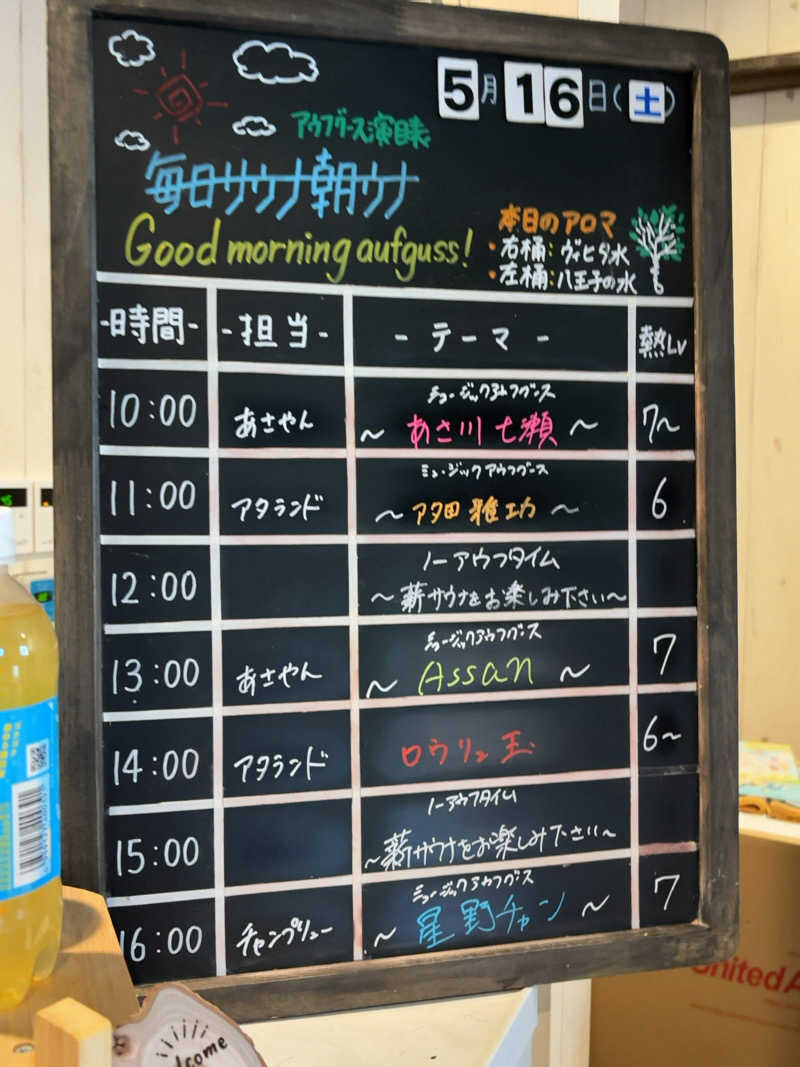 5月16日(土)
アウフグース演目表
毎日サウナ朝ウナ
Good morning aufguss!
本日のアロマ
・右桶:ヴィヒタ水
・左桶:八王子の水
-時間- -担当- -テーマ- 熱Lv
ミュージックアウフグース
10:00 あさやん ~あさ川七瀬~ 7~
ミュージックアウフグース
11:00 アタランド ~アタ田雅功~ 6
ノーアウフタイム
12:00 ~薪サウナをお楽しみ下さい~
ミュージックアウフグース
13:00 あさやん ~Assan~ 7
14:00 アタランド ロウリュ玉 6~
ノーアウフタイム
15:00 ~薪サウナをお楽しみ下さい~
ミュージックアウフグース
16:00 チャンプリュー ~星野チャン~ 7
United A
lcome